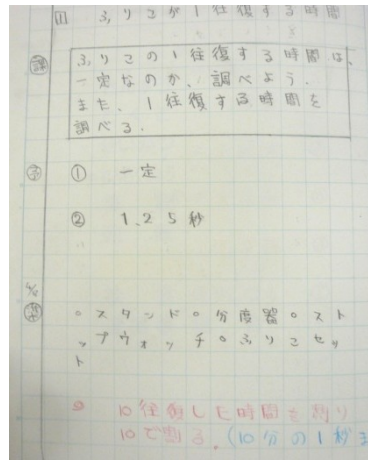 1 ふりこが1往復する時間
課 ふりこの1往復する時間は、
一定なのか、調べよう。
また、1往復する時間を
調べる。
予 ① 一定
② 1.25秒
準 。スタンド。分度器。スト
ップウォッチ。ふりこセッ
ト
10往復した時間を測り
10で割る。(10分の1秒ま